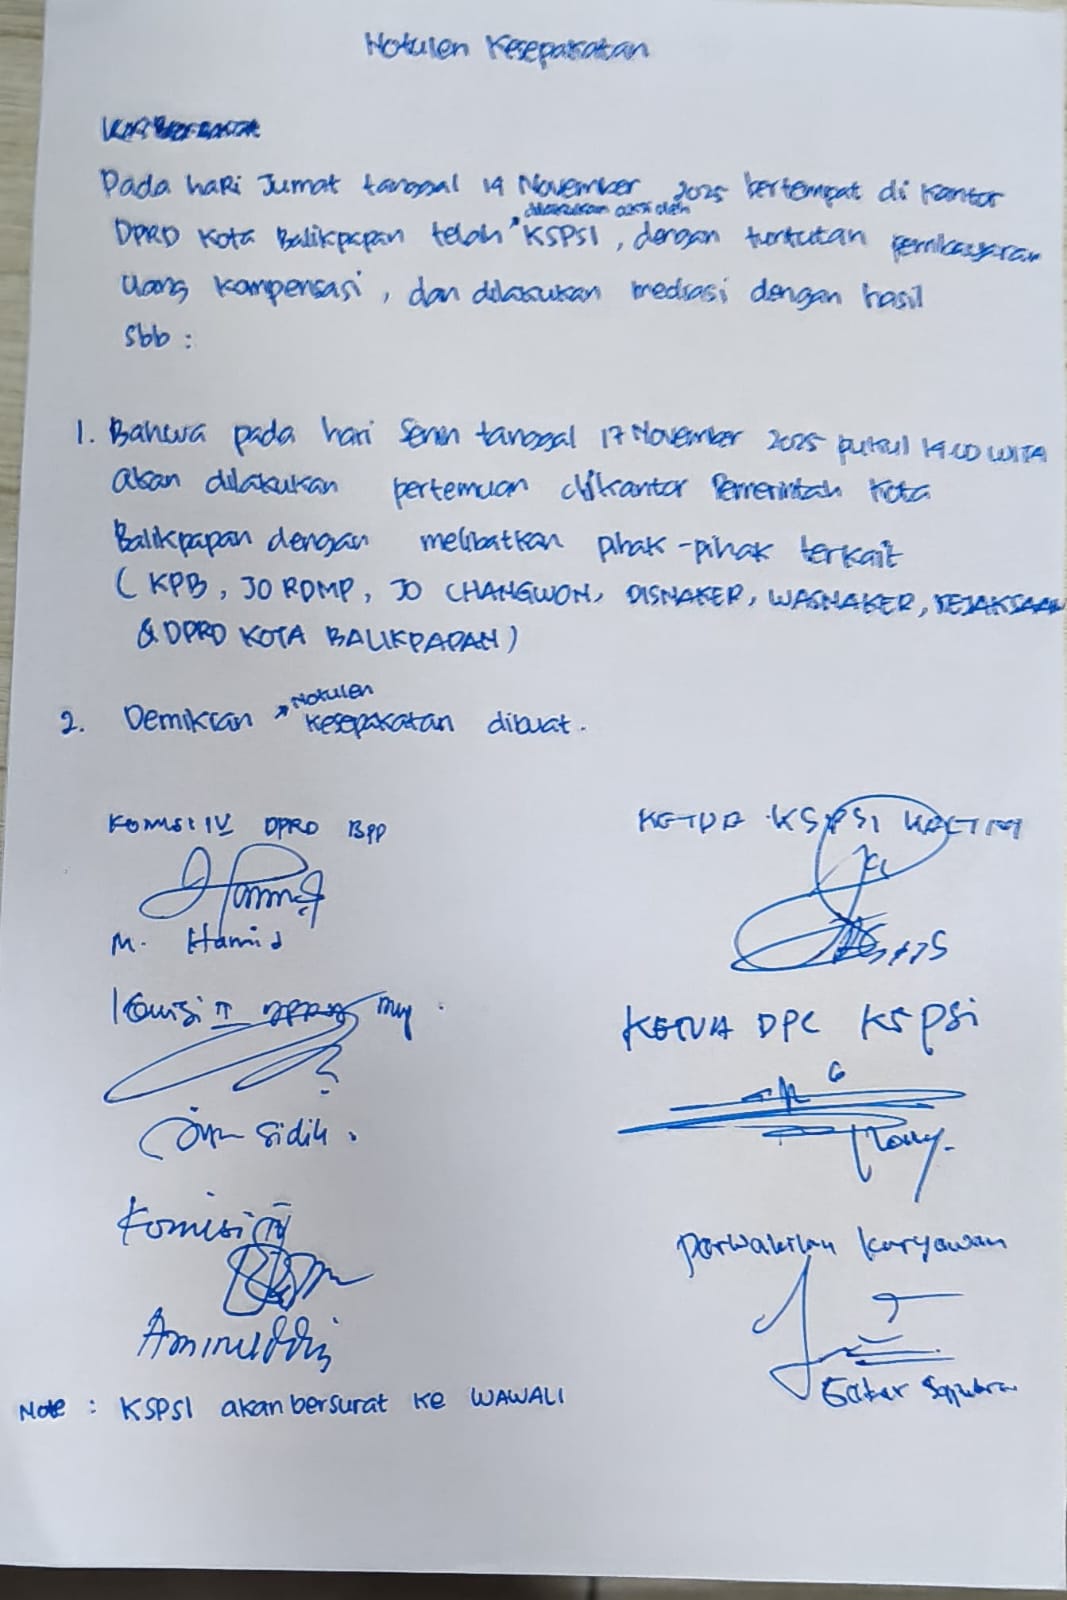 Notulen Kesepakatan
Pada hari Jumat tanggal 14 November 2025 bertempat di kantor
dilakukan aksi oleh
DPRD Kota Balikpapan telah KSPSI, dengan tuntutan pembayaran
Uang kompensasi, dan dilakukan mediasi dengan hasil
sbb :
1. Bahwa pada hari Senin tanggal 17 November 2025 pukul 14.00 WITA
akan dilakukan pertemuan dikantor Pemerintah Kota
Balikpapan dengan melibatkan pihak-pihak terkait
( KPB, JO RDMP, JO CHANGWON, DISNAKER, WASNAKER, KEJAKSAAN
& DPRD KOTA BALIKPAPAN )
Notulen
2. Demikian kesepakatan dibuat.
Komisi IV DPRD BPP
KETUA KSPSI KALTIM
M. Hamid
Komisi II DPRD
KETUA DPC KSPSI
Sidik.
Komisi IV
Perwakilan Karyawan
Aminuddin
Note : KSPSI akan bersurat ke WAWALI